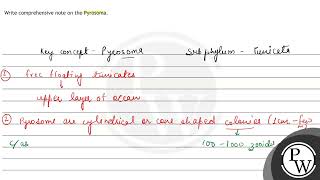 Write comprehensive note on the Pyrosoma.
Key concept - Pyrosoma    Subphylum - Tunicata
① free floating tunicates
↳ upper layer of ocean
② Pyrosome are cylindrical or cone shaped colonies (1cm - few
100-1000 zooids
PW